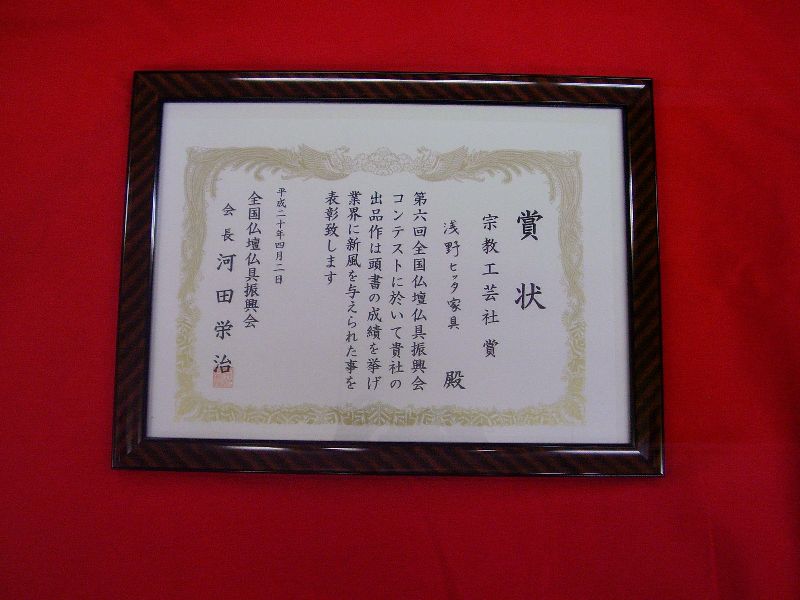 賞状
宗教工芸社賞
浅野ヒッタ家具 殿
第六回全国仏壇仏具振興会
コンテストに於いて貴社の
出品作は頭書の成績を挙げ
業界に新風を与えられた事を
表彰致します
平成二十年四月二日
全国仏壇仏具振興会
会長 河田栄治